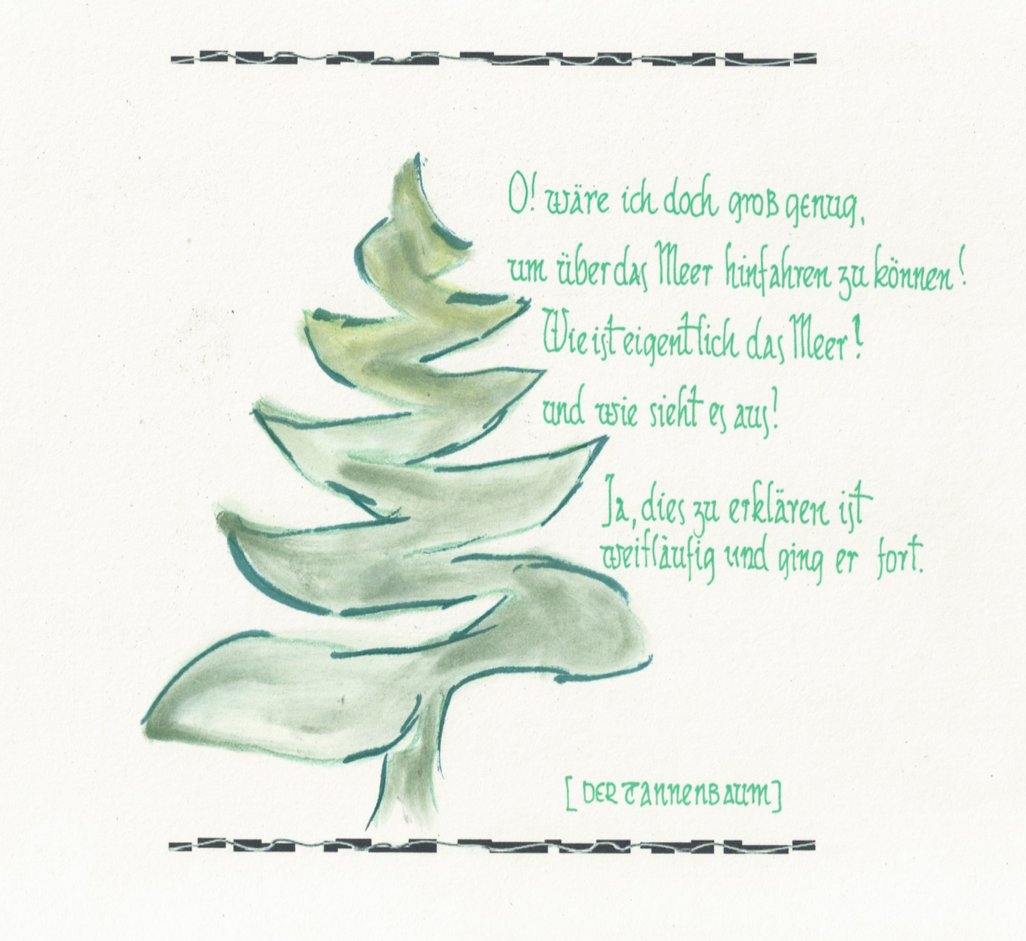 O! wäre ich doch groß genug,
um über das Meer hinfahren zu können!
Wie ist eigentlich das Meer!
und wie sieht es aus!
Ja, dies zu erklären ist
weitläufig und ging er fort.
[DER TANNENBAUM]